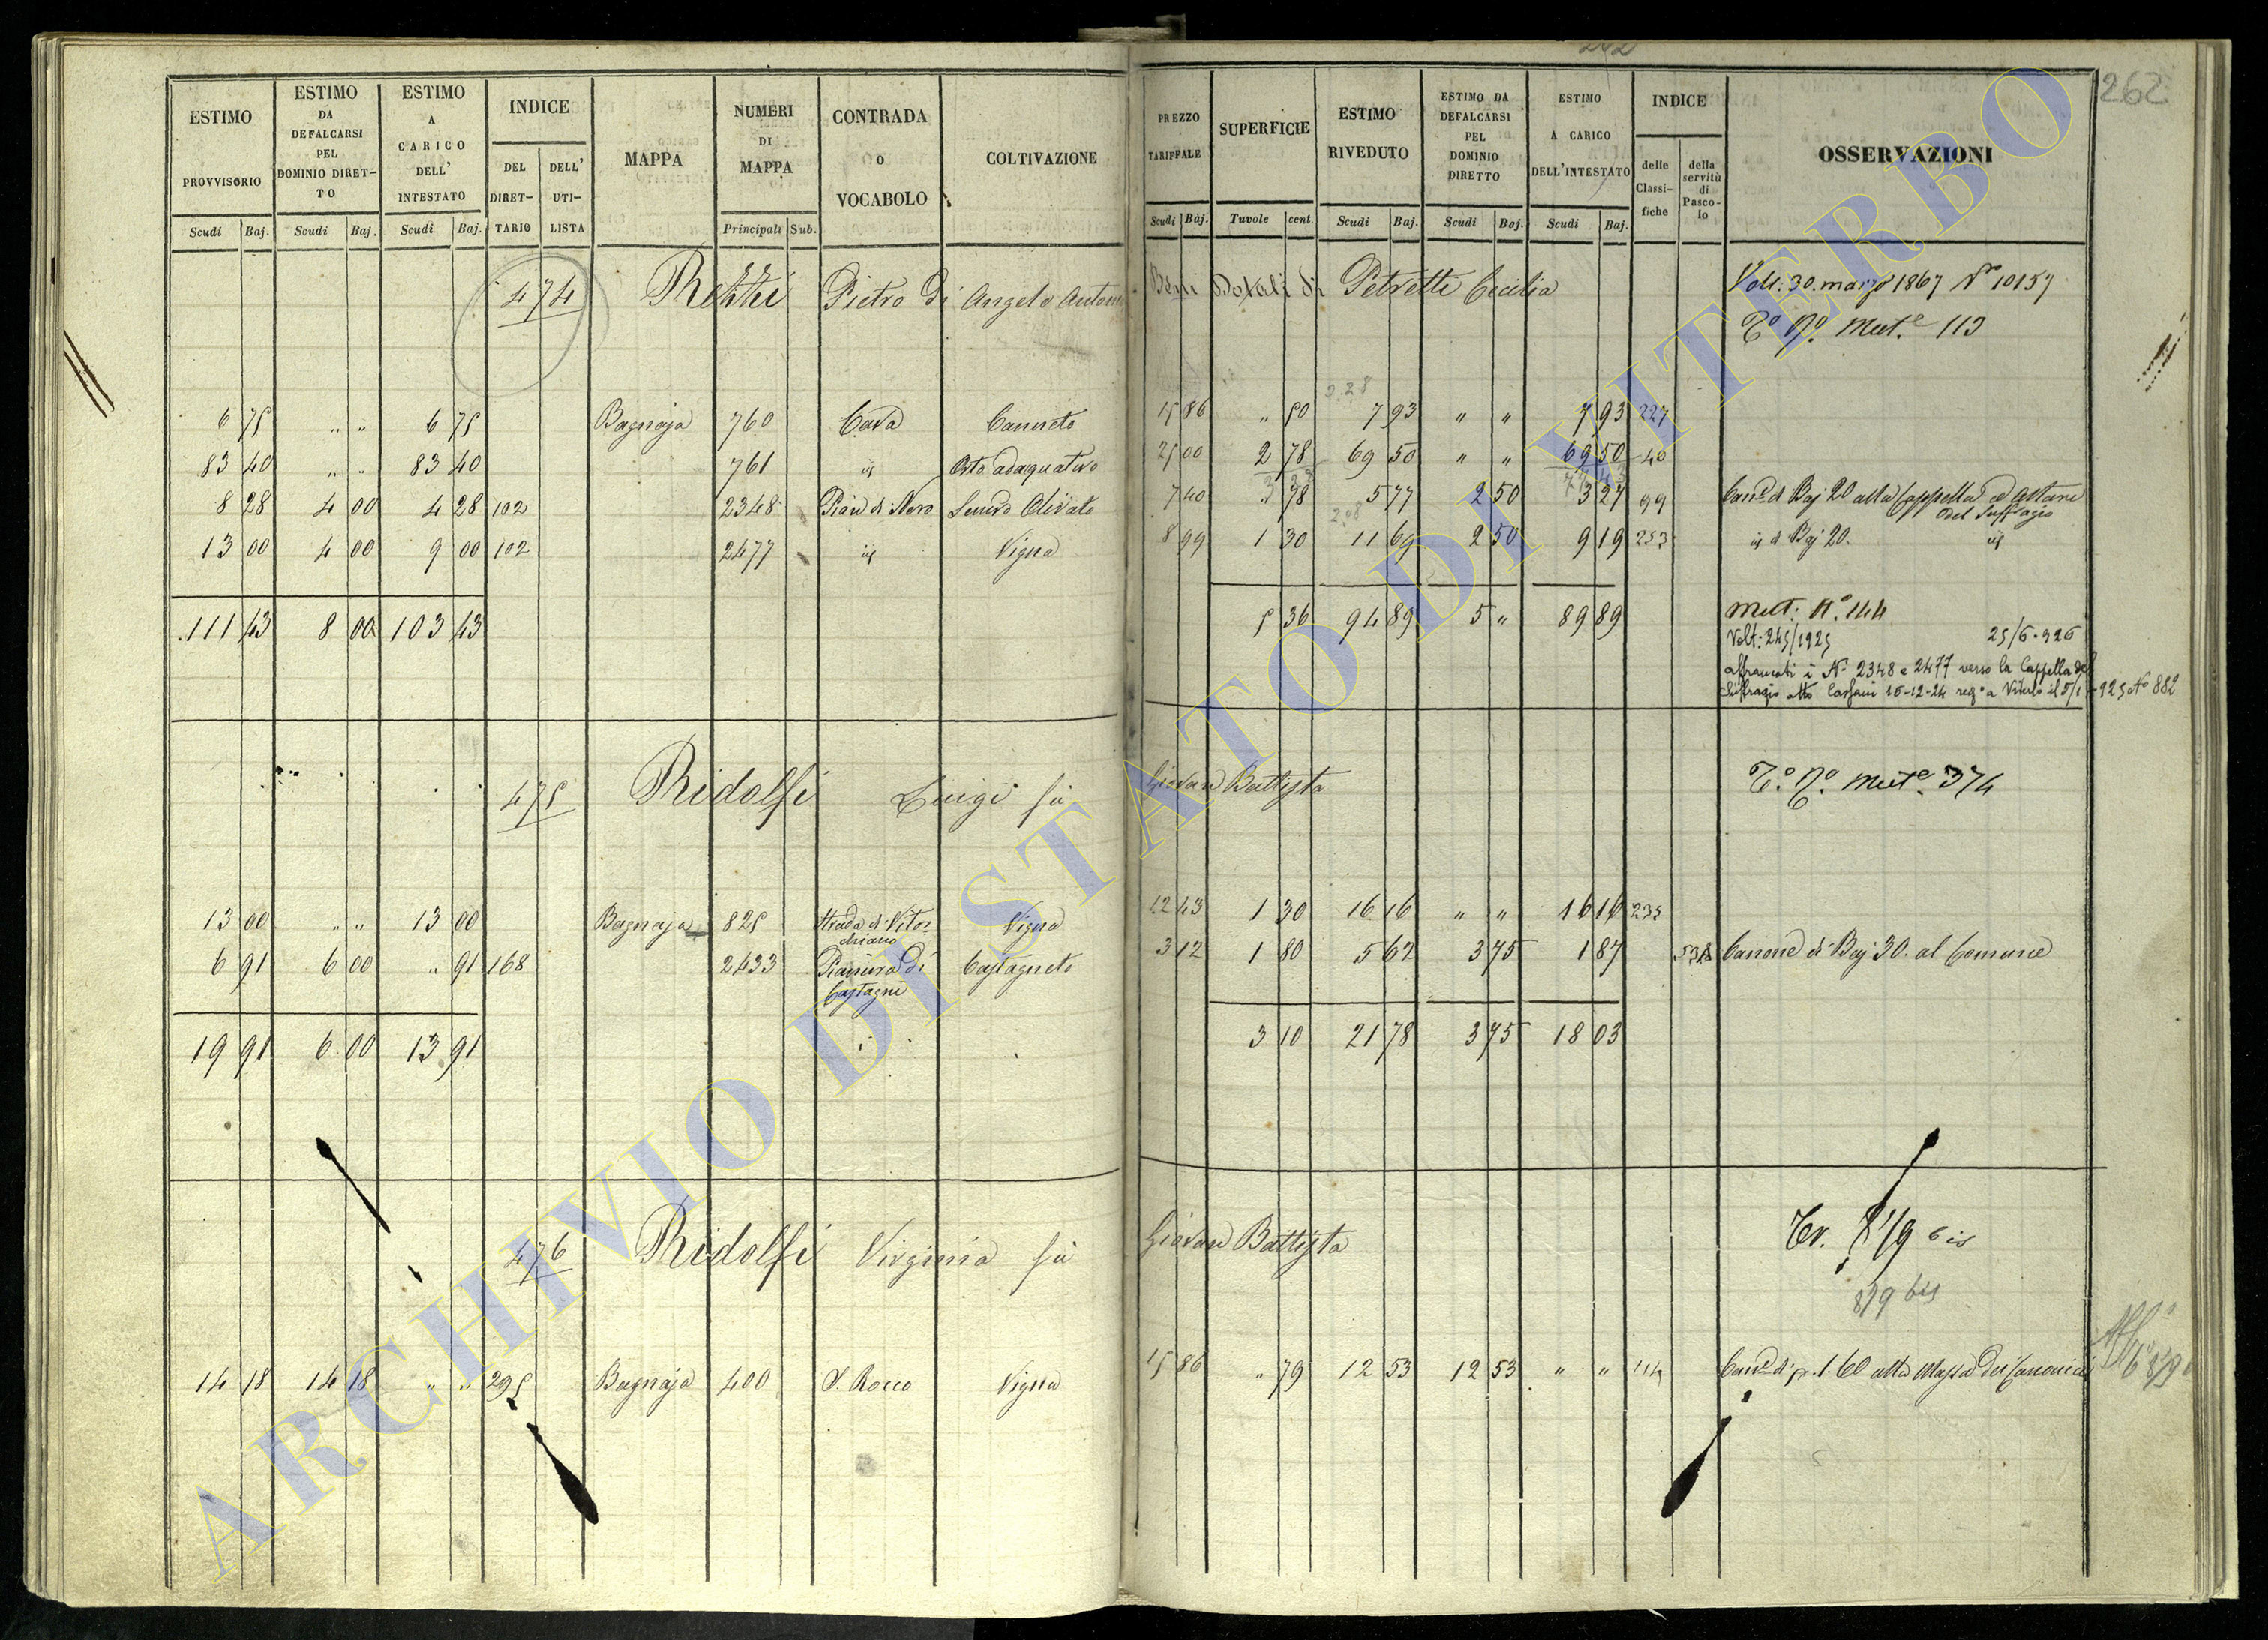 262
ESTIMO PROVVISORIO Scudi Baj.
ESTIMO DA DEFALCARSI PEL DOMINIO DIRET-TO Scudi Baj.
ESTIMO A CARICO DELL' INTESTATO Scudi Baj.
INDICE DEL DIRET-TARIO DELL' UTI-LISTA
MAPPA
NUMERI DI MAPPA Principali Sub.
CONTRADA O VOCABOLO
COLTIVAZIONE
PREZZO TARIFFALE Scudi Baj.
SUPERFICIE Tavole cent.
ESTIMO RIVEDUTO Scudi Baj.
ESTIMO DA DEFALCARSI PEL DOMINIO DIRETTO Scudi Baj.
ESTIMO A CARICO DELL'INTESTATO Scudi Baj.
INDICE delle Classi-fiche della servitù di Pasco-lo
OSSERVAZIONI
474 Pietro di Angelo Antonio Beni Dotali di Petretti Cecilia Volt. 30. marzo 1867 N° 10157
T° N° Mut.e 113
6 75 " " 6 75 Bagnaja 760 Cava Canneto 15 86 " 50 7 93 " " 7 93 227
83 40 " " 83 40 761 id Orto adaquativo 25 00 2 78 69 50 " " 69 50 40
8 28 4 00 4 28 102 2348 Pian di Nero Semvo Olivato 7 40 " 78 5 77 2 50 3 27 99 Can.e di Baj 20 alla Cappella o Altare
del Suffragio
13 00 4 00 9 00 102 2477 id Vigna 8 99 1 30 11 69 2 50 9 19 253 id di Baj 20. id
111 43 8 00 103 43 5 36 94 89 5 " 89 89 Mut: N° 144
Volt: 245/1925 25/6-926
affrancati i N. 2348 e 2477 verso la Cappella del
Suffragio atto 15-12-24 reg° a Viterbo il 5/1-925 N° 882
475 Ridolfi Luigi fù Giovan Battista T° N° Mut.e 374
13 00 " " 13 00 Bagnaja 825 Strada di Vitor-
chiano Vigna 12 43 1 30 16 16 " " 16 16 235
6 91 6 00 " 91 168 2433 Pianura di
Castagni Castagneto 3 12 1 80 5 62 3 75 1 87 Canone di Baj 30. al Comune
19 91 6 00 13 91 3 10 21 78 3 75 18 03
476 Ridolfi Virginia fù Giovan Battista Tr. 819 bis
819 bis
14 18 14 18 " " 295 Bagnaja 400 S. Rocco Vigna 15 86 " 79 12 53 12 53 " " 114 Can.e di 1.60 alla Massa dei Canonici
ARCHIVIO DI STATO DI VITERBO